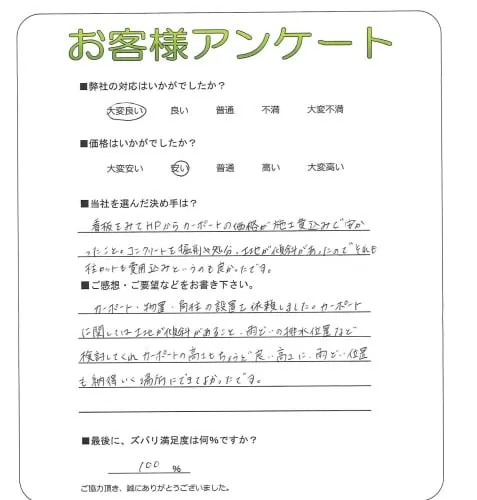 お客様アンケート
■弊社の対応はいかがでしたか？
大変良い 良い 普通 不満 大変不満
■価格はいかがでしたか？
大変安い 安い 普通 高い 大変高い
■当社を選んだ決め手は？
看板をみてHPからカーポートの価格が施工費込みで安か
ったこと。コンクリートを掘削や処分、土地が傾斜があったのでそれも
柱カットも費用込みというのも良かったです。
■ご感想・ご要望などをお書き下さい。
カーポート・物置・角柱の設置を依頼しました。カーポート
に関しては土地が傾斜があること、雨どいの排水位置など
検討してくれ カーポートの高さもちょうど良い高さに、雨どい位置
も納得いく場所にできてよかったです。
■最後に、ズバリ満足度は何%ですか？
100 %
ご協力頂き、誠にありがとうございました。